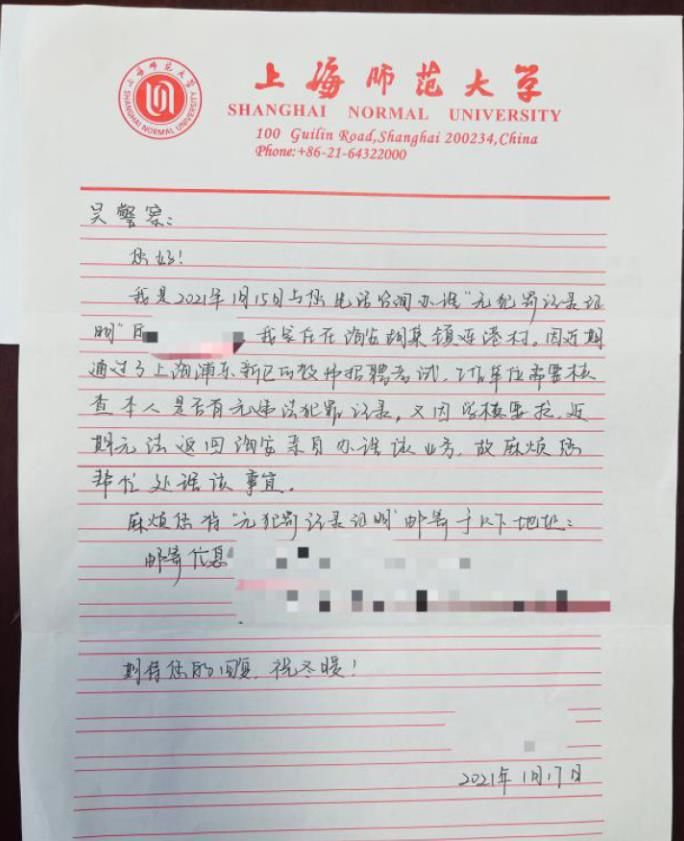 上海师范大学
SHANGHAI NORMAL UNIVERSITY
上海师范大学
SHANGHAI NORMAL UNIVERSITY
100 Guilin Road,Shanghai 200234,China
Phone:+86-21-64322000
吴警察:
您好!
我是2021年1月15日与您电话咨询办理“无犯罪记录证
明”的 我家住在淮安胡集镇连港村。因近期
通过了上海浦东新区的教师招聘考试,工作单位需要核
查本人是否有无违法犯罪记录,又因学校要求,近
期无法返回淮安亲自办理该业务,故麻烦您
帮忙处理该事宜。
麻烦您将“无犯罪记录证明”邮寄于以下地址:
邮寄信息
期待您的回复,祝冬暖!
2021年1月17日